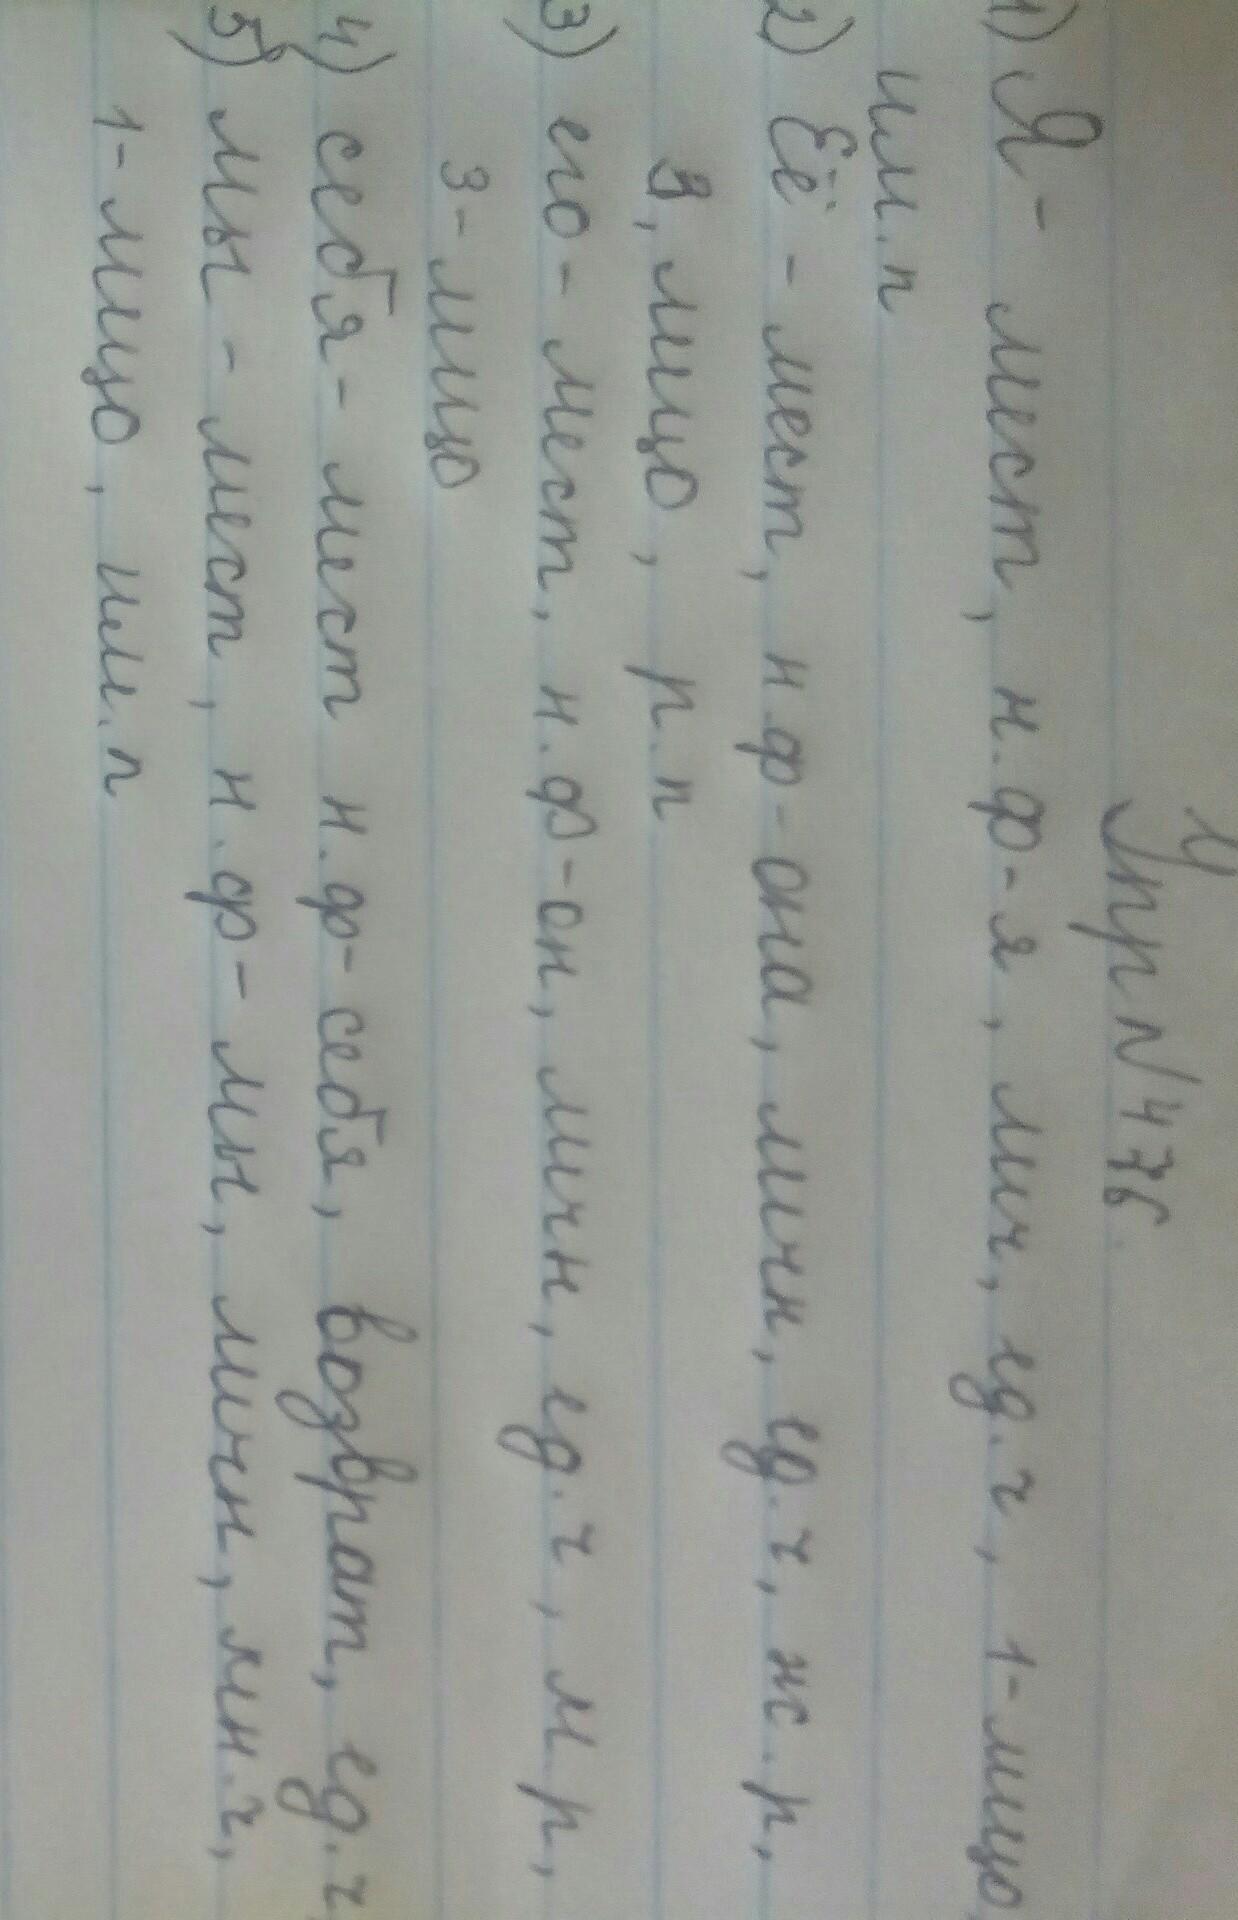 Упр N 476.
1) Я - мест, н.ф-я, лич, ед.ч, 1-лицо,
им.п
2) Её - мест, н.ф-она, личн, ед.ч, ж.р,
3, лицо, р.п
3) его - мест, н.ф-он, личн, ед.ч, м.р,
3-лицо
4) себя - мест н.ф-себя, возврат, ед.ч,
5) мы - мест, н.ф-мы, личн, мн.ч,
1-лицо, им.п